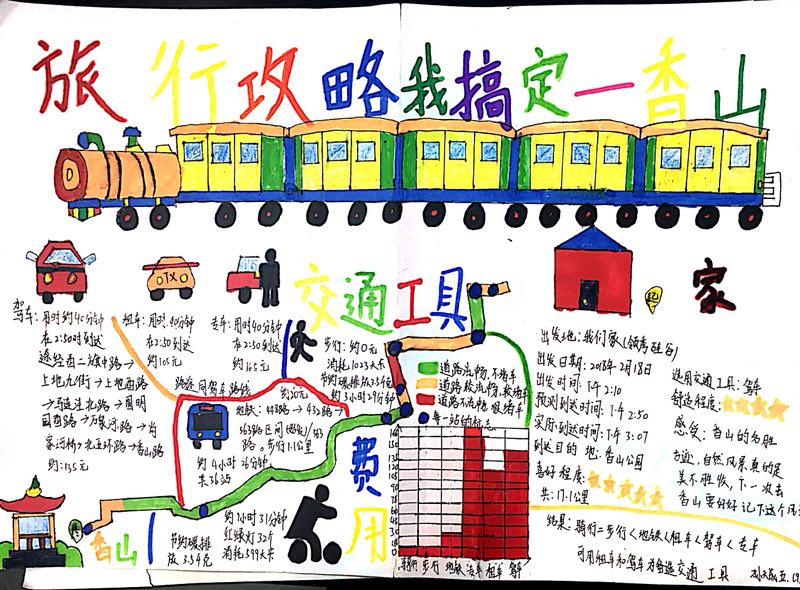 旅行攻略我搞定一香山
交通工具
家
驾车:用时约40分钟
在2:50时到达
途经西二旗中路→
上地九街→上地西路
→马连洼北路→圆明
园西路→万泉河路→
→北五环路→香山路
租车:用时40分钟
在2:50到达
约105元
专车:用时40分钟
在2:50到达
约165元
步行:约0元
消耗1023大卡
节约碳排放3.54千克
约3小时29分钟
路途同驾车路线
路。步行1.1公里
约1小时26分钟
共36站
道路流畅,不堵车
道路较流畅,较堵车
道路不流畅,很堵车
每一站的标志
费用
骑行 步行 地铁 专车 租车 驾车
约1小时31分钟
红绿灯32个
消耗599大卡
节约碳排
放3.54千克
香山
出发地:我们家(领秀硅谷)
出发日期:2018年2月18日
出发时间:下午2:10
预测到达时间:下午2:50
实际到达时间:下午3:07
到达目的地:香山公园
喜好程度:
共:17.1公里
选用交通工具:驾车
舒适程度:
感受:香山的名胜
古迹,自然风景真的是
美不胜收,下一次去
香山要好好记下这个风景
结果:骑行=步行<地铁<租车<驾车<专车
可用租车和驾车为备选交通工具